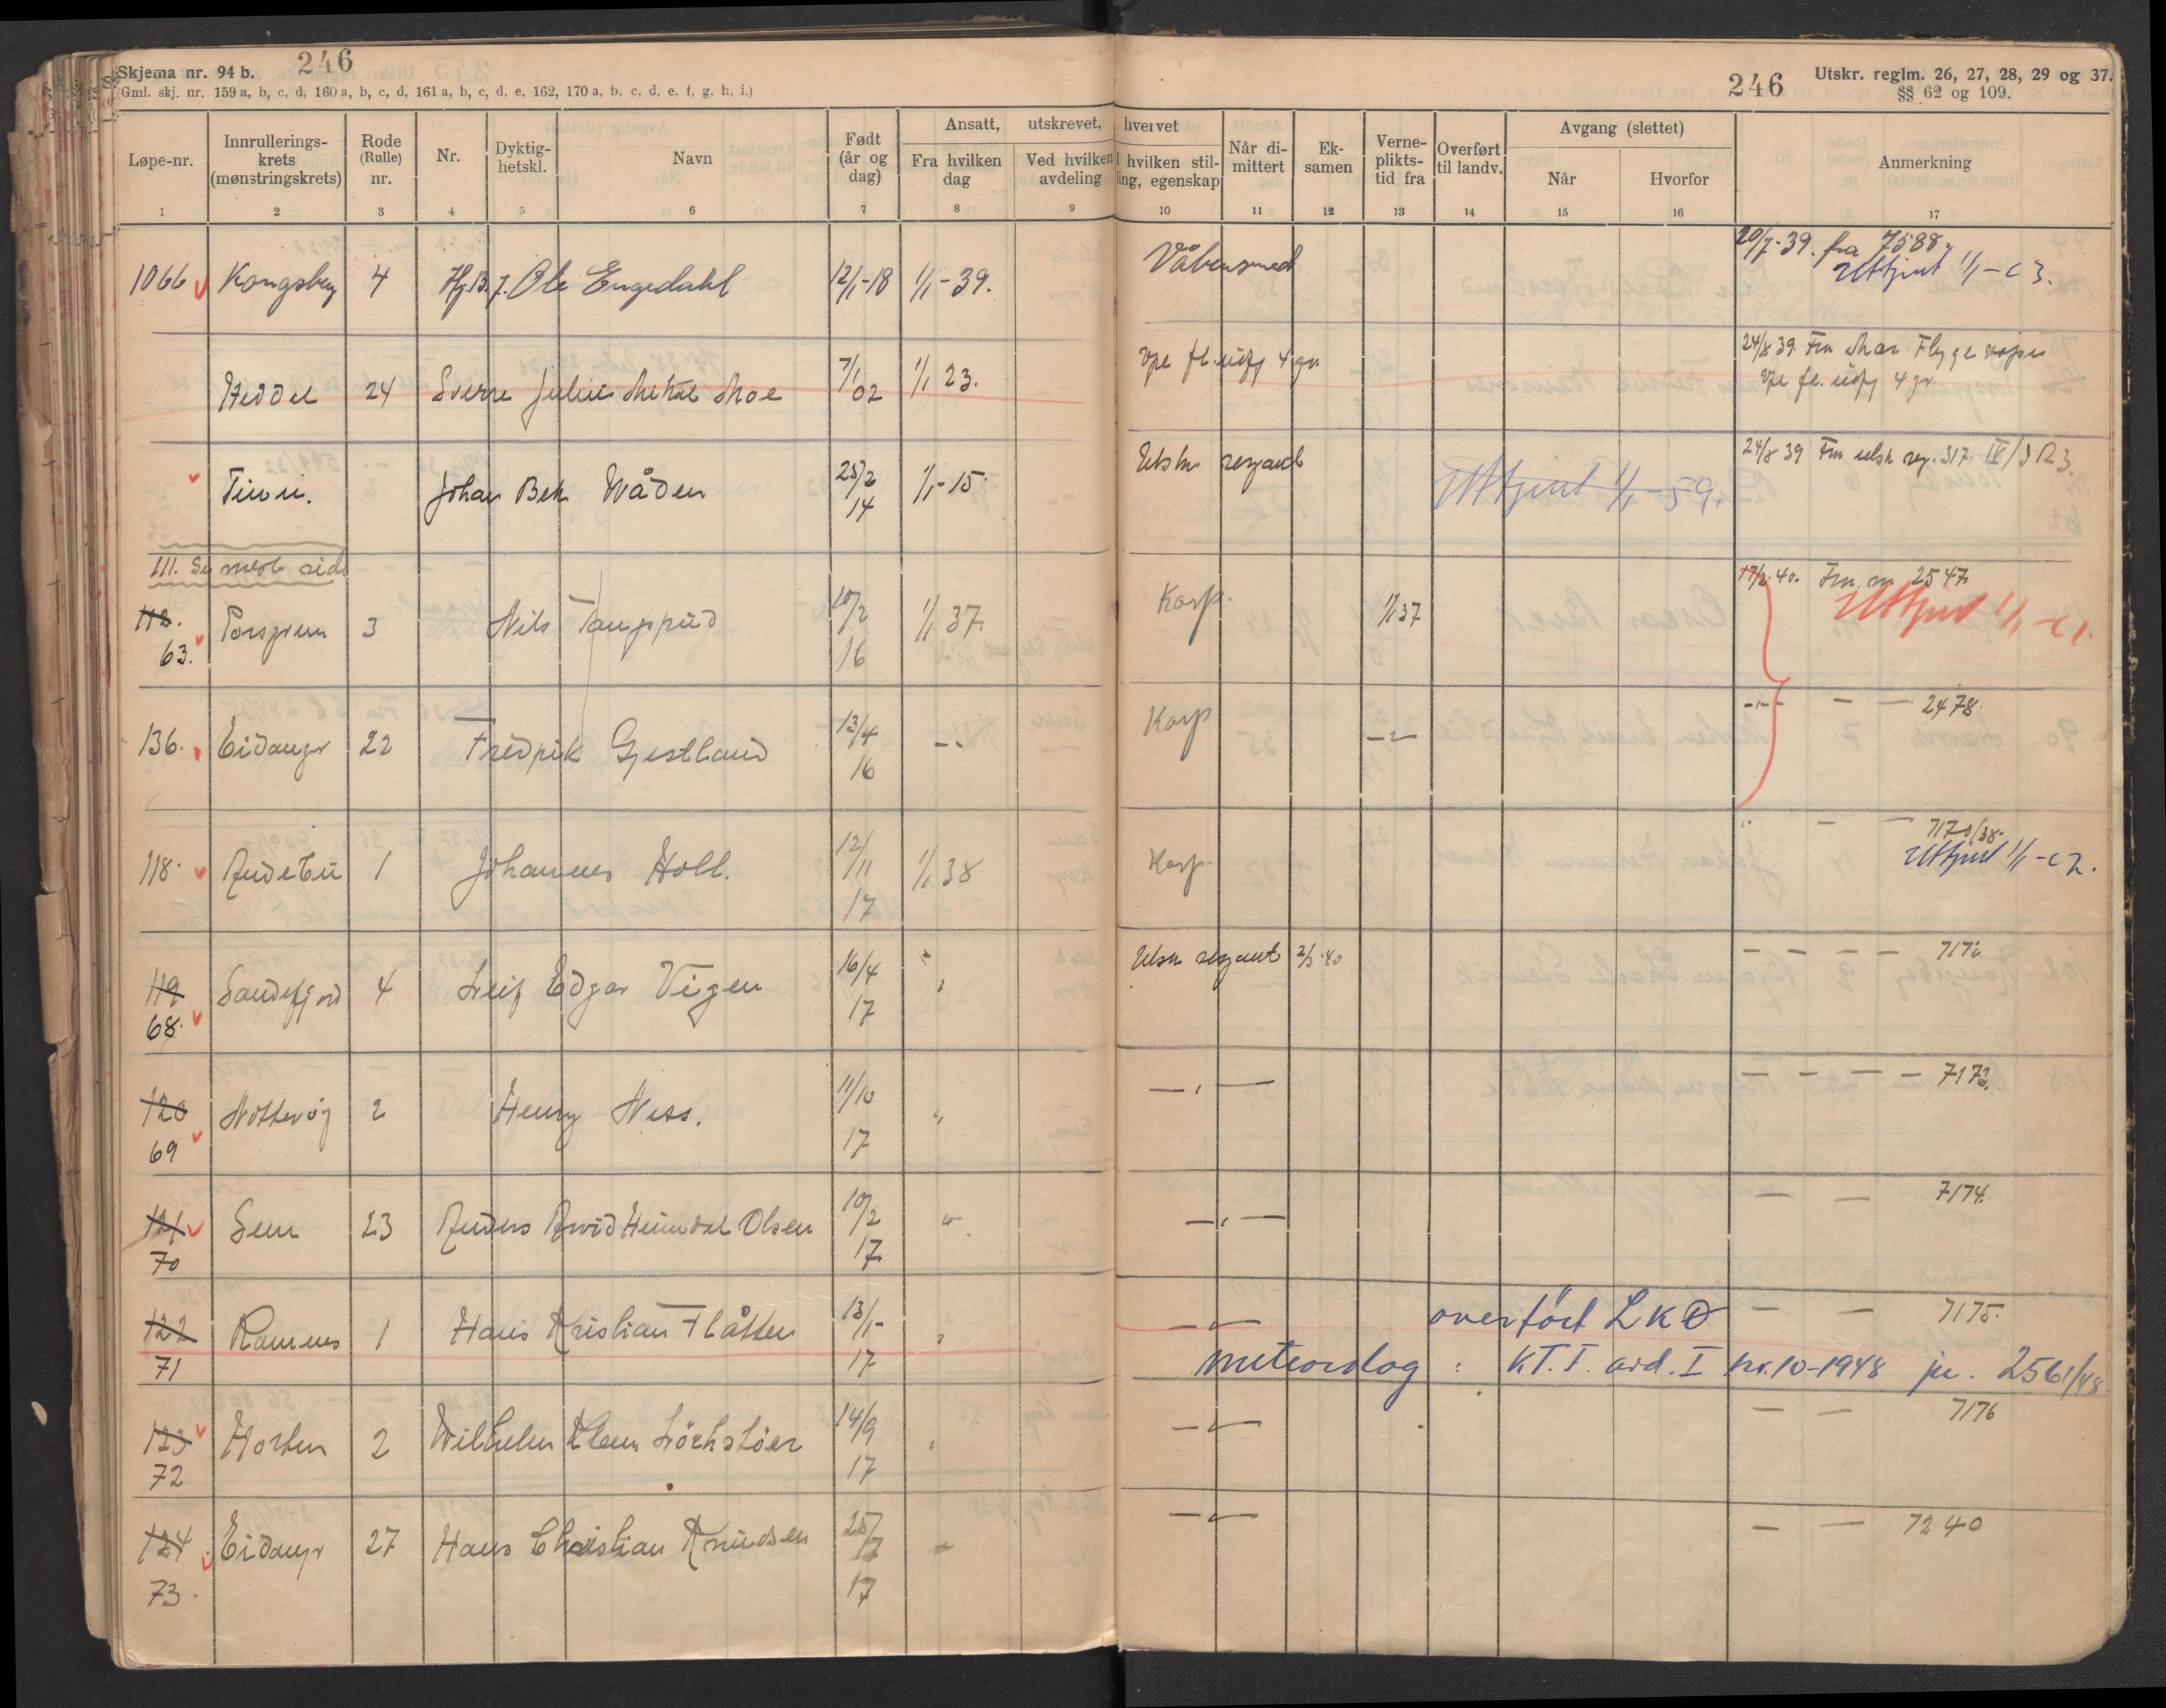 246
Skjema nr. 94 b.
(Gml. skj. nr. 159 a, b, c, d, 160 a, b, c, d, 161 a, b, c, d, e, 162, 170 a, b, c, d, e, f, g, h, i.)
246
Utskr. reglm. 26, 27, 28, 29 og 37.
§§ 62 og 109.
Løpe-nr. Innrullerings-krets (mønstringskrets) Rode (Rulle) nr. Nr. Dyktig-hetskl. Navn Født (år og dag) Ansatt, utskrevet, hvervet Fra hvilken dag Ved hvilken avdeling I hvilken stil-ling, egenskap Når di-mittert Ek-samen Verne-plikts-tid fra Overført til landv. Avgang (slettet) Når Hvorfor Anmerkning
1 2 3 4 5 6 7 8 9 10 11 12 13 14 15 16 17
1066 Kongsberg 4 Ole Engedahl 12/1-18 1/1-39. Våbensmed 20/7-39. fra 7588.
Uttjent 1/1-63.
Heddel 24 Sverre Julius Moe 7/1 02 1/1 23. 4 gr. 24/8 39. Fra
4 gr.
Tinn. Johan Bek Wåden 25/2 14 1/1-15. Utskr sersjant Uttjent 1/1-59. 24/8 39 Fra utsk 317 IV/IR3.
III. Se neste side
112. 63. Porsgrunn 3 Nils 10/2 16 1/1 37. Korp. 1/1 37 17/2-40. Fra nr 2547
Uttjent 1/1-61.
136. Eidanger 22 Fredrik Gjestland 13/4 16 -"- Korp -"- -"- — — 2478.
118. Andebu 1 Johannes Holl. 12/11 17 1/1 38 Korp. " — — 7170/38.
Uttjent 1/1-62.
119 68. Sandefjord 4 Leif Edgar Vigen 16/4 17 " Utskr sersjant 2/3-40 — — — — 7172
120 69 Nøtterøy 2 Henry Ness. 11/10 17 " —"— — — — — 7173.
121 70 Sem 23 Anders Arvid Heimdal Olsen 10/2 17 " —"— — — 7174.
122 71 Ramnes 1 Hans Kristian Flåtten 13/1 17 " —"— overført LKØ — — 7175.
meteorolog : KT. I. avd. I nr. 10-1948 jr. 2561/48
123 72 Horten 2 Wilhelm 14/9 17 " —"— — — 7176
124 73. Eidanger 27 Hans Christian Knudsen 25/7 17 " —"— — — 7240